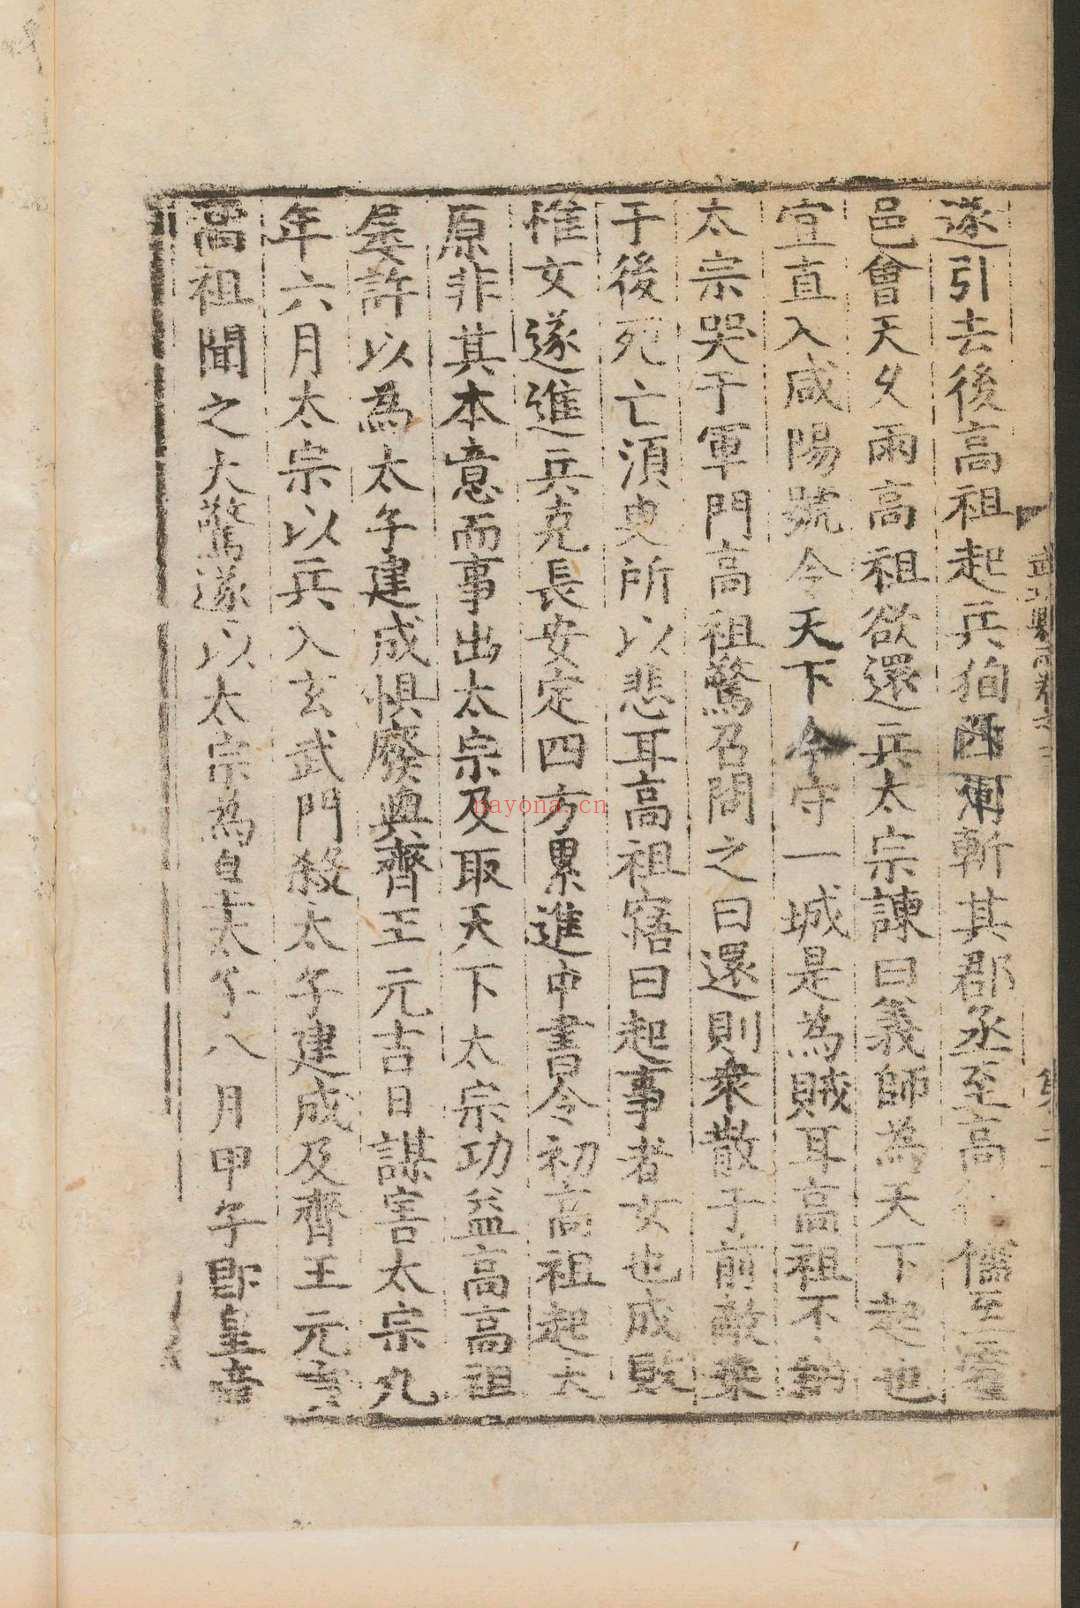 遂引去後高祖起兵徇西河斬其郡丞至高儒至霍
邑會天久雨高祖欲還兵太宗諫曰義師為天下起也
宜直入咸陽號令天下今守一城是為賊耳高祖不納
太宗哭于軍門高祖驚召問之曰還則衆散于前敵乗
于後死亡須臾所以悲耳高祖寤曰起事者女也成敗
惟女遂進兵克長安定四方累進中書令初高祖起太
原非其本意而事出太宗及取天下太宗功益高高祖
屡許以為太子建成惧廢與齊王元吉日謀害太宗九
年六月太宗以兵入玄武門殺太子建成及齊王元吉
高祖聞之大驚遂以太宗為皇太子八月甲午即皇帝
武功縣志卷之三
nayona.cn